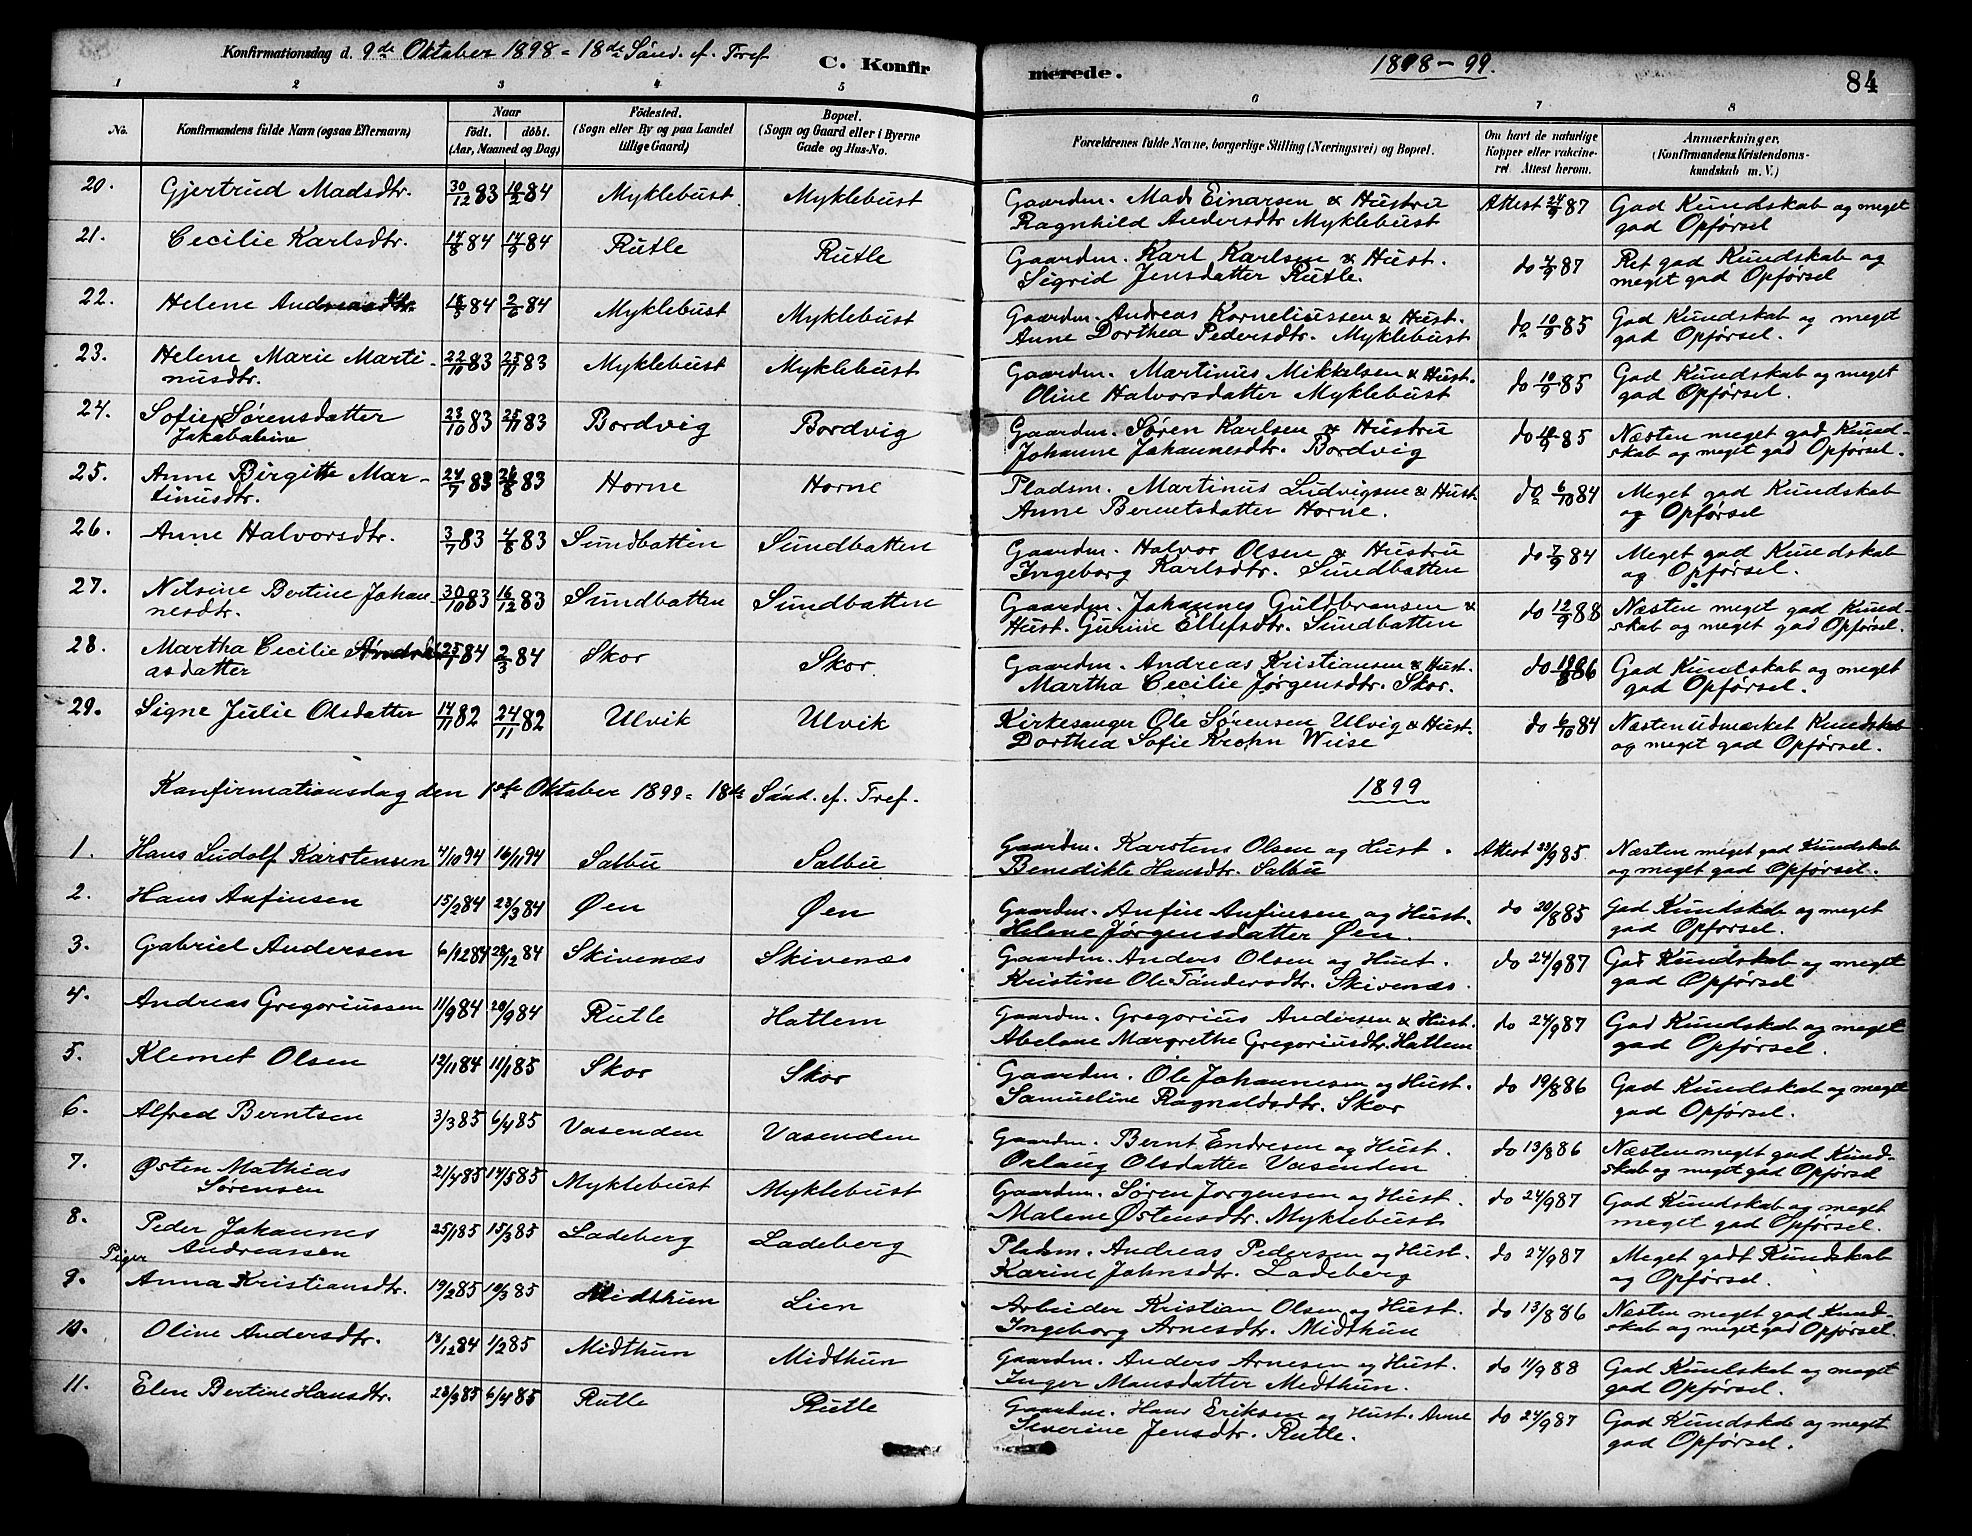 Konfirmationsdag d. 9de Oktober 1898 = 18de Sönd. ef. Tref. C. Konfirmerede. 1898-99. 84
1 2 3 4 5 6 7 8
No. Konfirmandens fulde Navn (ogsaa Efternavn) Naar födt. döbt. (Aar, Maaned og Dag) Födested. (Sogn eller By og paa Landet tillige Gaard) Bopæl. (Sogn og Gaard eller i Byerne Gade og Hus-No. Forældrenes fulde Navne, borgerlige Stilling (Næringsvei) og Bopæl. Om havt de naturlige Kopper eller vakcineret Attest herom. Anmærkninger, (Konfirmandens Kristendomskundskab m. V.)
20. Gjertrud Madsdtr. 30/12 83 10/2 84 Myklebust Myklebust Gaardm. Mads Einarsen & Hustru Attest 24/9 87 God Kundskab og meget
Ragnhild Andersdtr Myklebust god Opførsel
21. Cecilie Karlsdtr. 14/8 84 14/9 84 Rutle Rutle Gaardm. Karl Karlsen & Hust. do 4/9 87 Ret god Kundskab og
Sigrid Jensdatter Rutle. meget god Opførsel
22. Helene Andreasdtr. 2/6 84 Myklebust Myklebust Gaardm. Andreas Korneliussen & Hust. do 10/9 85 God Kundskab og meget
Anne Dorthea Pedersdtr. Myklebust god Opførsel.
23. Helene Marie Marti- 22/10 83 25/11 83 Myklebust Myklebust Gaardm. Martinus Mikkelsen & Hust. do 10/9 85 God Kundskab og meget
nusdtr. Oline Halvorsdatter Myklebust god Opførsel.
24. Sofie Sørensdatter 23/10 83 25/11 83 Bordvig Bordvig Gaardm. Søren Karlsen & Hustru do 85 Næsten meget god Kund-
Jakobaleine Johanne Johannesdtr. Bordvig skab og meget god Opførsel.
25. Anne Birgitte Mar- 24/7 83 26/8 83 Horne Horne Pladsm. Martinus Ludvigsen & Hust do 6/10 84 Meget god Kundskab
tinusdtr. Anne Berentsdatter Horne. og Opførsel
26. Anne Halvorsdtr. 3/7 83 4/8 83 Sundbatten Sundbatten Gaardm. Halvor Olsen & Hustru do 7/9 84 Meget god Kundskab
Ingeborg Karlsdtr. Sundbatten og Opførsel.
27. Nilsine Bertine Johan- 30/10 83 16/12 83 Sundbatten Sundbatten Gaardm. Johannes Guldbransen & do 12/9 88 Næsten meget god Kund-
nesdtr. Hust. Gurine Ellefsdtr. Sundbatten skab og meget god Opførsel.
28. Martha Cecilie Andre- 25/1 84 2/3 84 Skor Skor Gaardm. Andreas Kristiansen & Hust. do 19/8 86 God Kundskab og meget
asdatter Martha Cecilie Jørgensdtr. Skor. god Opførsel.
29. Signe Julie Olsdatter 14/11 82 24/11 82 Ulvik Ulvik Kirkesanger Ole Sørensen Ulvig & Hust. do 6/10 84 Næsten udmærket Kundskab
Dorthea Sofie Krohn Wiise og meget god Opførsel.
Konfirmationsdag den 1ste Oktober 1899 = 18de Sönd. ef. Tref. 1899
1. Hans Ludolf Karstensen 4/10 94 16/11 94 Salbu Salbu Gaardm. Karstens Olsen og Hust. Attest 23/9 85. Næsten meget god Kundskab
Benedikte Hansdtr. Salbu og meget god Opførsel.
2. Hans Anfinsen 15/2 84 23/3 84 Øen Øen Gaardm. Anfin Anfinsen og Hust. do 20/8 85 God Kundskab og meget
Helene Jørgensdatter Øen. god Opførsel.
3. Gabriel Andersen 6/12 84 28/12 84 Skivenæs Skivenæs Gaardm. Anders Olsen og Hust. do 24/9 87 God Kundskab og meget
Kristine Ole Tøndersdtr. Skivenæs. god Opførsel
4. Andreas Gregoriussen 11/9 84 20/9 84 Rutle Hatlem Gaardm. Gregorius Andersen & Hust. do 24/9 87 God Kundskab og meget
Abelone Margrethe Gregoriusdtr. Hatlem god Opførsel.
5. Klemet Olsen 12/11 84 11/1 85 Skor Skor Gaardm. Ole Johannesen og Hust. do 19/8 86 God Kundskab og meget
Samueline Ragnaldsdtr. Skor god Opførsel.
6. Alfred Berntsen 3/3 85 6/4 85 Vasenden Vasenden Gaardm. Bernt Endresen og Hust. do 13/8 86 Næsten meget god Kund-
Orlaug Olsdatter Vasenden skab og meget god Opførsel
7. Østen Mathias 21/4 85 14/5 85 Myklebust Myklebust Gaardm. Søren Jørgensen og Hust. do 24/9 87 God Kundskab og meget
Sørensen Malene Østensdtr. Myklebust meget god Opførsel.
8. Peder Johannes 25/1 85 15/3 85 Ladeberg Ladeberg Pladsm. Andreas Pedersen og Hust. do 24/9 87 Meget godt Kundskab
Andreassen Karine Johnsdtr. Ladeberg og Opførsel.
Piger
9. Anna Kristiansdtr. 19/2 85 19/3 85 Midthun Lien Arbeider Kristian Olsen og Hust. do 13/8 86 Næsten meget god Kund-
Ingeborg Arnesdtr. Midthun skab og meget god Opførsel.
10. Oline Andersdtr. 13/12 84 1/2 85 Midthun Midthun Gaardm. Anders Arnesen og Hust. do 11/9 88 God Kundskab og meget
Inger Monsdatter Midthun. god Opførsel.
11. Elen Bertine Hansdtr. 23/3 85 6/4 85 Rutle Rutle Gaardm. Hans Eriksen og Hust. Anne do 24/9 87 God Kundskab og meget
Severine Jensdtr. Rutle. god Opførsel.